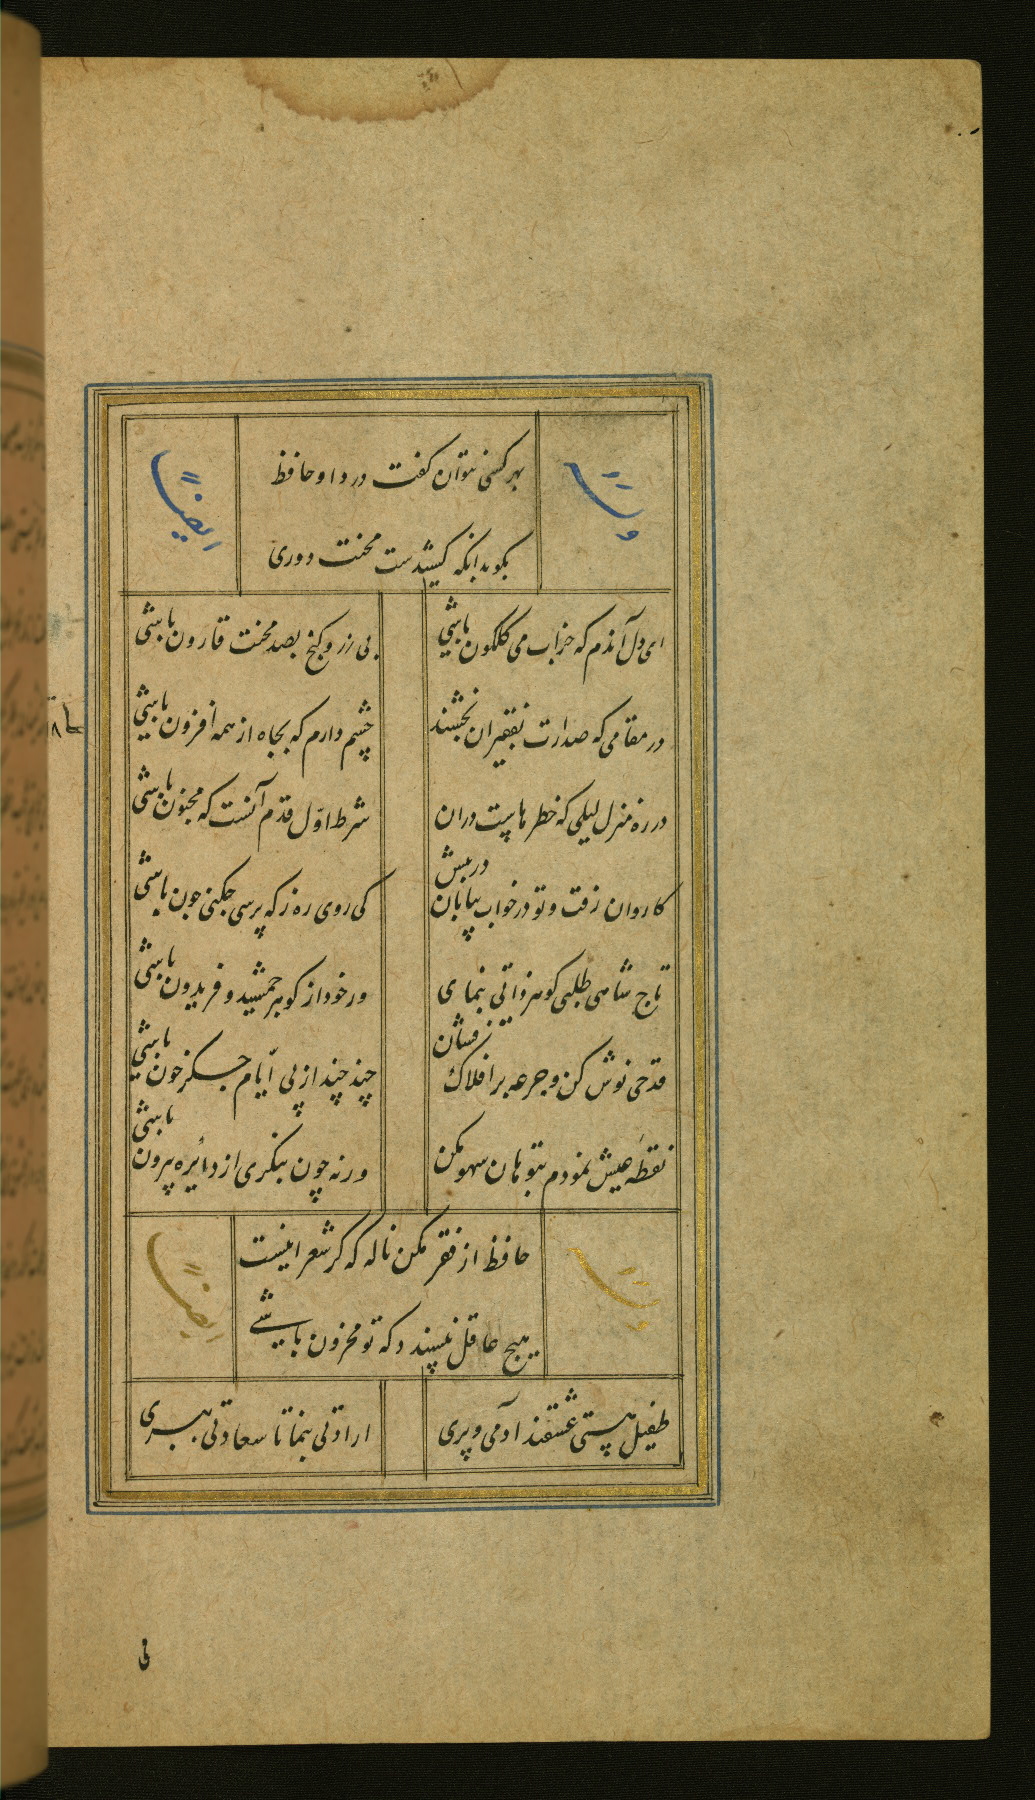 وله
بهر کسی نتوان گفت درد او حافظ
ایضاً
بگو بدانکه کشیدست محنت دوری
ای دل آندم که خراب می گلگون باشی
بی زر و گنج بصد محنت قارون باشی
در مقامی که صدارت بفقیران بخشند
چشم دارم که بجاه از همه افزون باشی
در ره منزل لیلی که خطرهاست دران
شرط اول قدم آنست که مجنون باشی
کاروان رفت و تو در خواب بیابان در پیش
کی روی ره ز که پرسی چکنی چون باشی
تاج شاهی طلبی گوهر ذاتی بنمای
ور خود از گوهر جمشید و فریدون باشی
قدحی نوش کن و جرعه بر افلاک فشان
چند چند از پی ایام جگر خون باشی
نقطه عیش نمودم بتو هان سهو مکن
ورنه چون بنگری از دائره بیرون باشی
حافظ از فقر مکن ناله که گر شعر اینست
ایضاً
هیچ عاقل نپسندد که تو محزون باشی
طفیل هستی عشقند آدمی و پری
ارادتی بنما تا سعادتی ببری